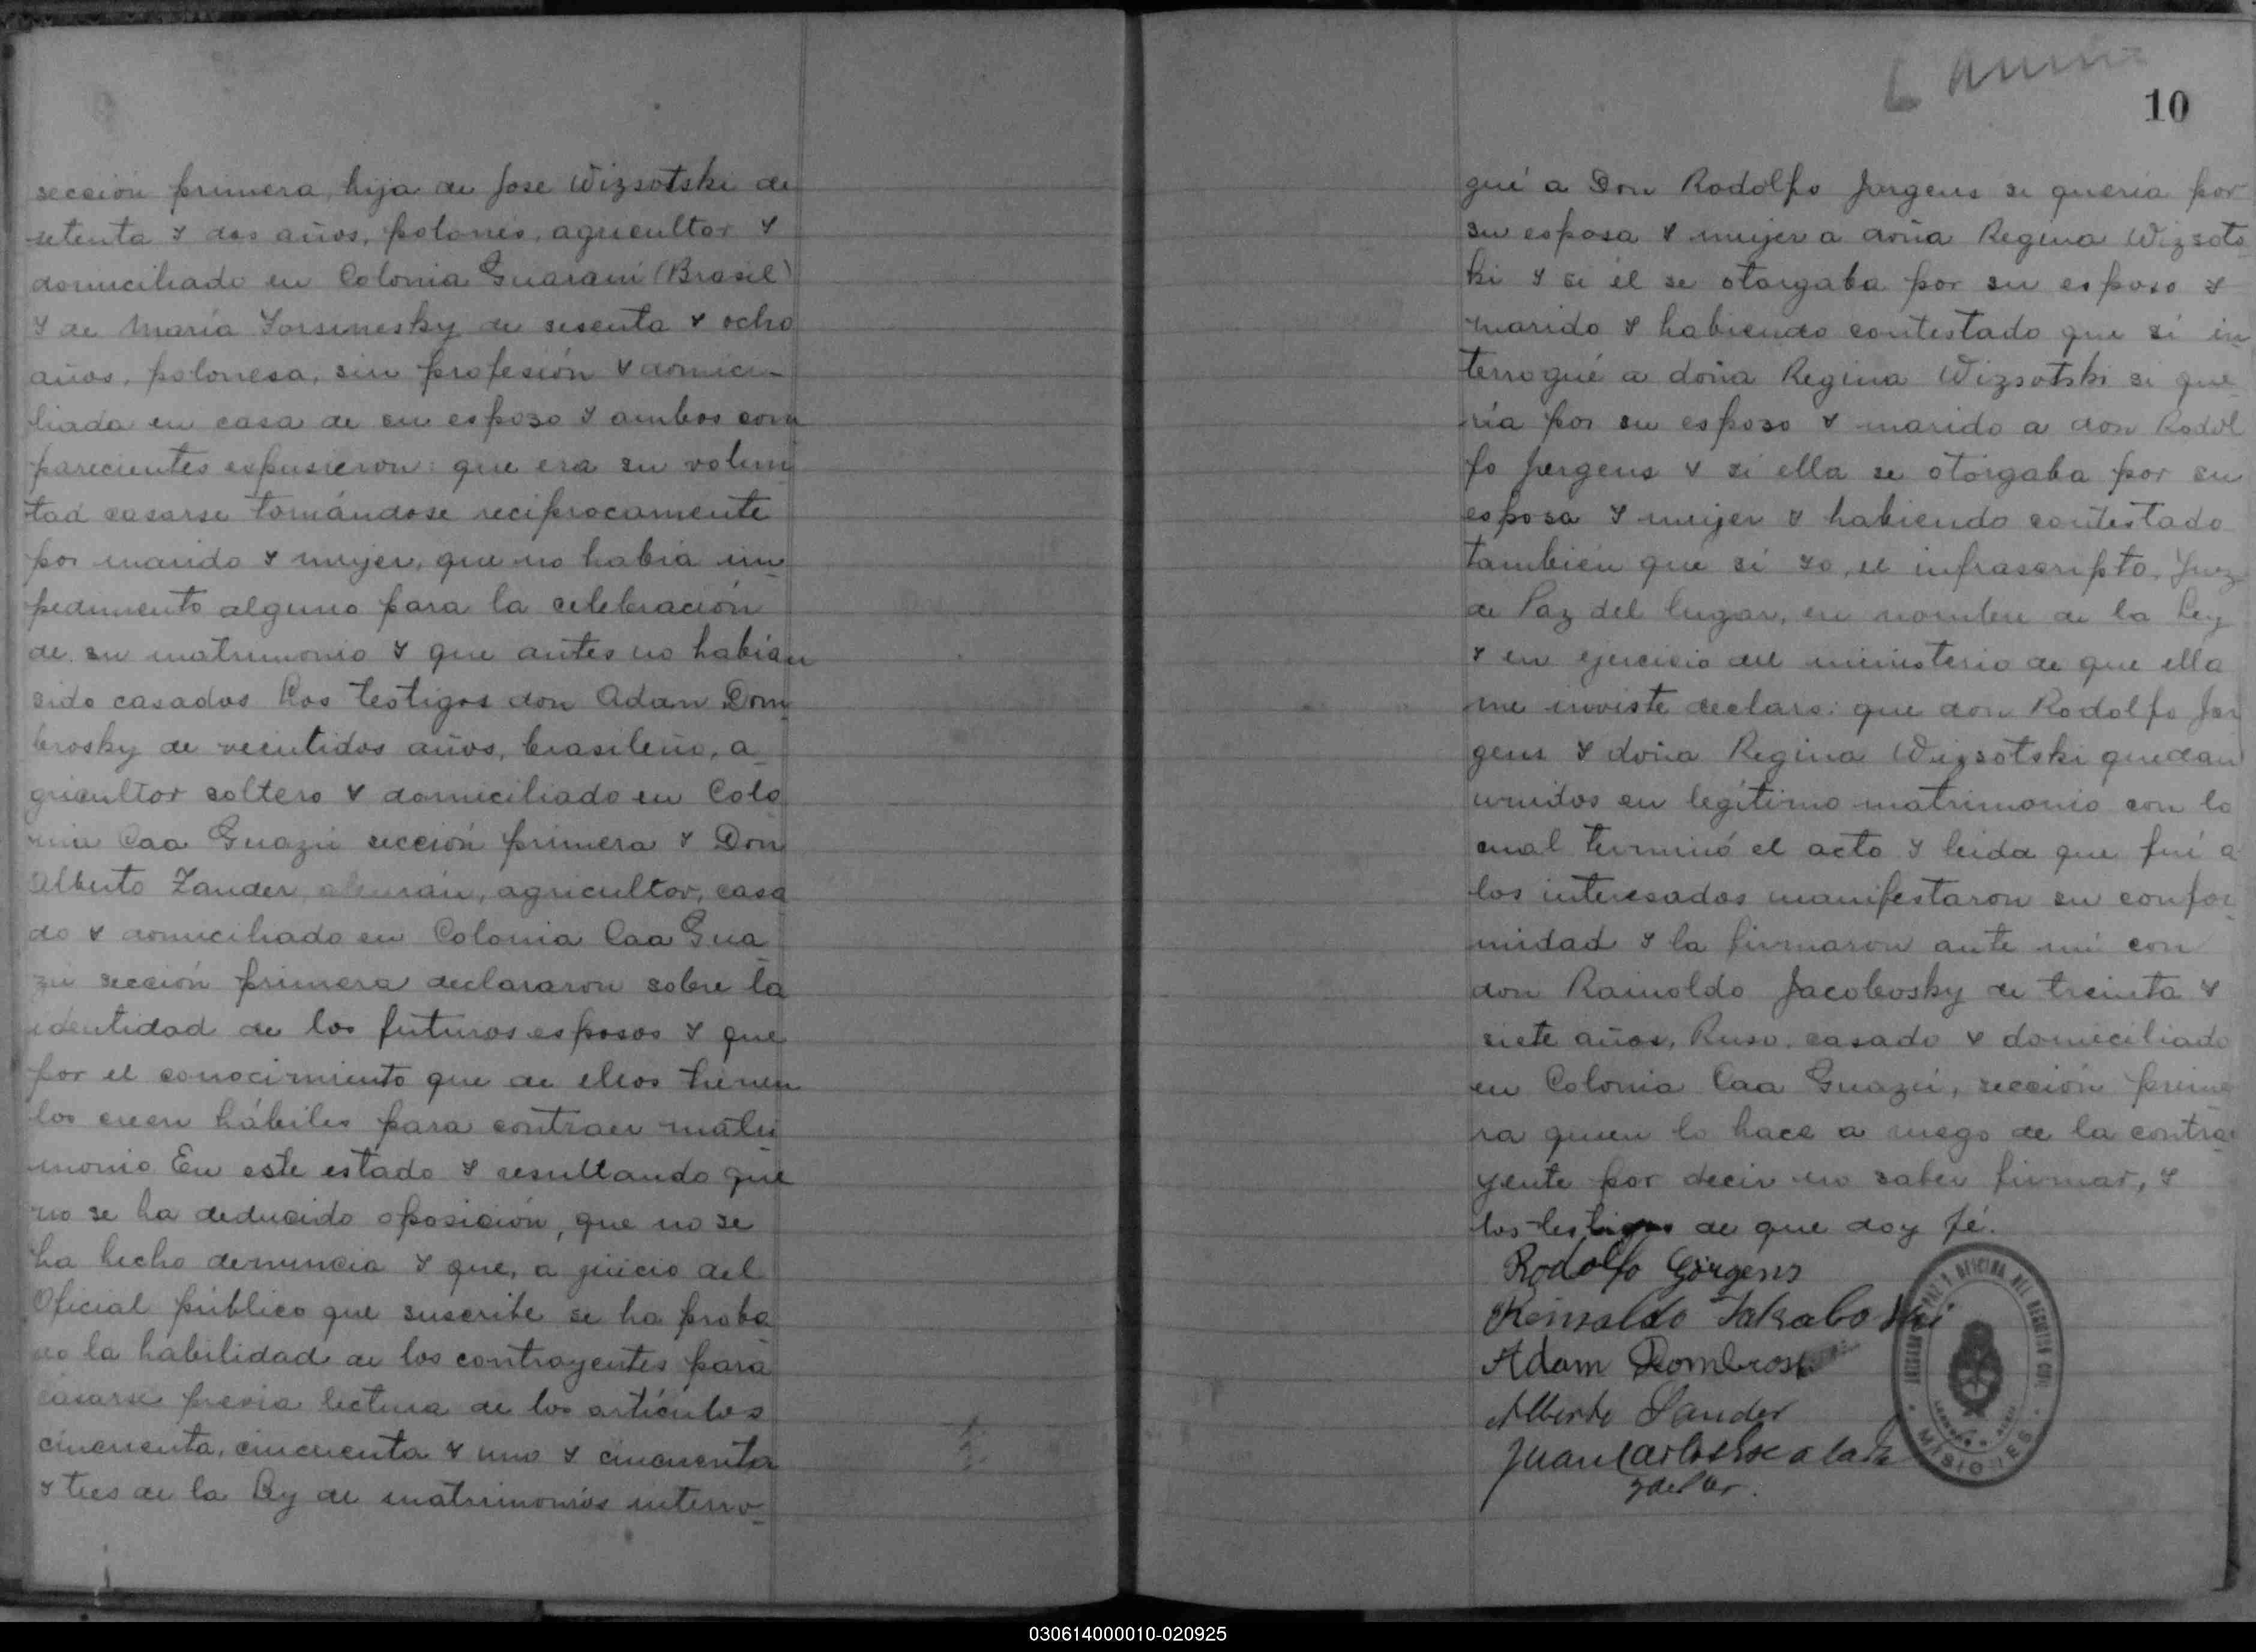 sección primera, hija de Jose Wizsotski de
setenta y dos años, polonés, agricultor y
domiciliado en Colonia Guaraní (Brasil)
y de María Yorsinesky de sesenta y ocho
años, polonesa, sin profesión y domici-
liada en casa de su esposo y ambos com
parecientes expusieron: que era su volun
tad casarse tomándose recíprocamente
por marido y mujer, que no había im
pedimento alguno para la celebración
de su matrimonio y que antes no habían
sido casados Los testigos don Adan Dom
brosky de veintidos años, brasileño, a
gricultor soltero y domiciliado en Colo
nia Caa Guazú sección primera y Don
Alberto Zander, alemán, agricultor, casa
do y domiciliado en Colonia Caa Gua
zu sección primera declararon sobre la
identidad de los futuros esposos y que
por el conocimiento que de ellos tienen
los creen hábiles para contraer matri
monio En este estado y resultando que
no se ha deducido oposición, que no se
ha hecho denuncia y que, a juicio del
Oficial público que suscribe se ha proba
do la habilidad de los contrayentes para
casarse previa lectura de los artículos
cincuenta, cincuenta y uno y cincuenta
y tres de la Ley de matrimonios interro-
10
gué a Don Rodolfo Jorgens si quería por
su esposa y mujer a doña Regina Wizsots
ki y si él se otorgaba por su esposo y
marido y habiendo contestado que sí in
terrogué a doña Regina Wizsotski si que
ría por su esposo y marido a don Rodol
fo Jorgens y si ella se otorgaba por su
esposa y mujer y habiendo contestado
también que sí yo, el infrascripto, Juez
de Paz del lugar, en nombre de la Ley
y en ejercicio del ministerio de que ella
me inviste declaro: que don Rodolfo Jor
gens y doña Regina Wizsotski quedan
unidos en legítimo matrimonio con lo
cual terminó el acto y leída que fué a
los interesados manifestaron su confor
midad y la firmaron ante mí con
don Rainoldo Jacobosky de treinta y
siete años, Ruso, casado y domiciliado
en Colonia Caa Guazú, sección prime
ra quien lo hace a ruego de la contra
yente por decir no saber firmar, y
los testigos de que doy fé.
Rodolfo Görgens
Reinoldo Jakabo
Adam Dombroski
Alberto Sander
Juan Carlos
MISIONES
030614000010-020925